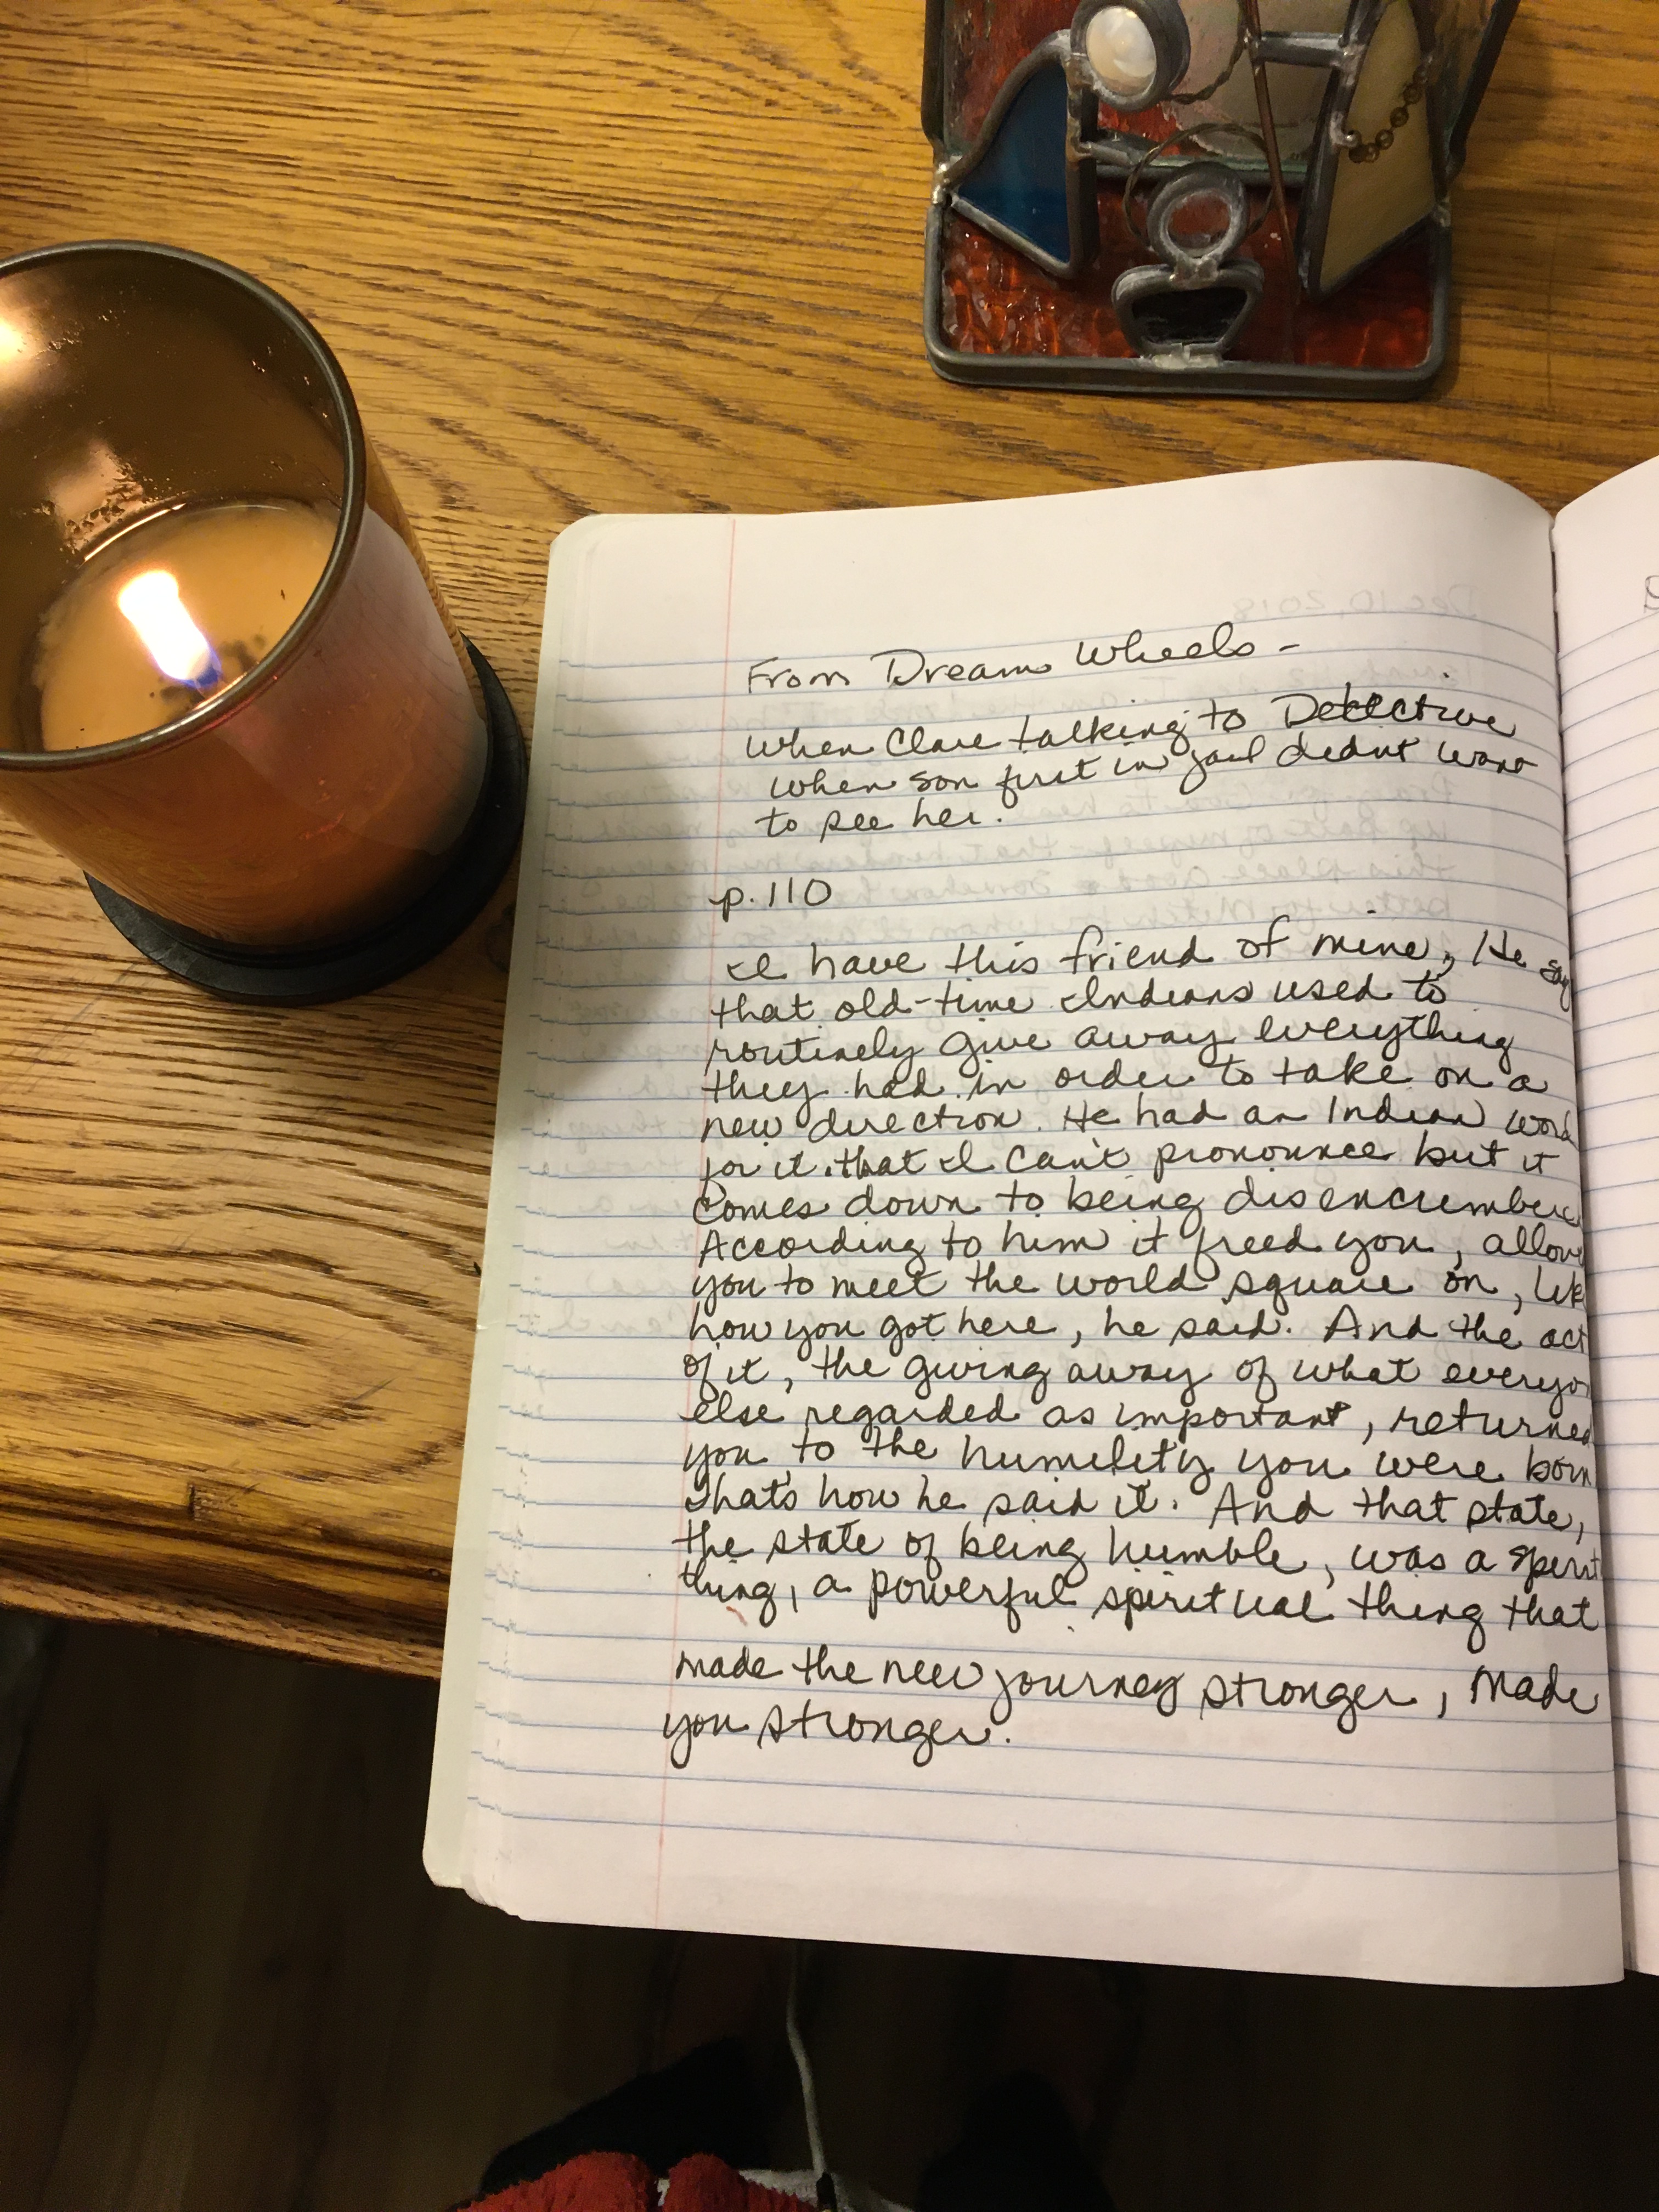 Dec 10, 2018
From Dream Wheels -
When Clare talking to Detective
when son first in jail didnt want
to see her.
p. 110
I have this friend of mine, He say
that old-time Indians used to
routinely give away everything
they had in order to take on a
new direction. He had an Indian word
for it that I can't pronounce but it
comes down to being disencumbere
According to him it freed you, allow
you to meet the world square on, like
how you got here, he said. And the act
of it, the giving away of what everyo
else regarded as important, returned
you to the humility you were born
Thats how he said it. And that state,
the state of being humble, was a spirit
thing, a powerful spiritual thing that
made the new journey stronger, made
you stronger.